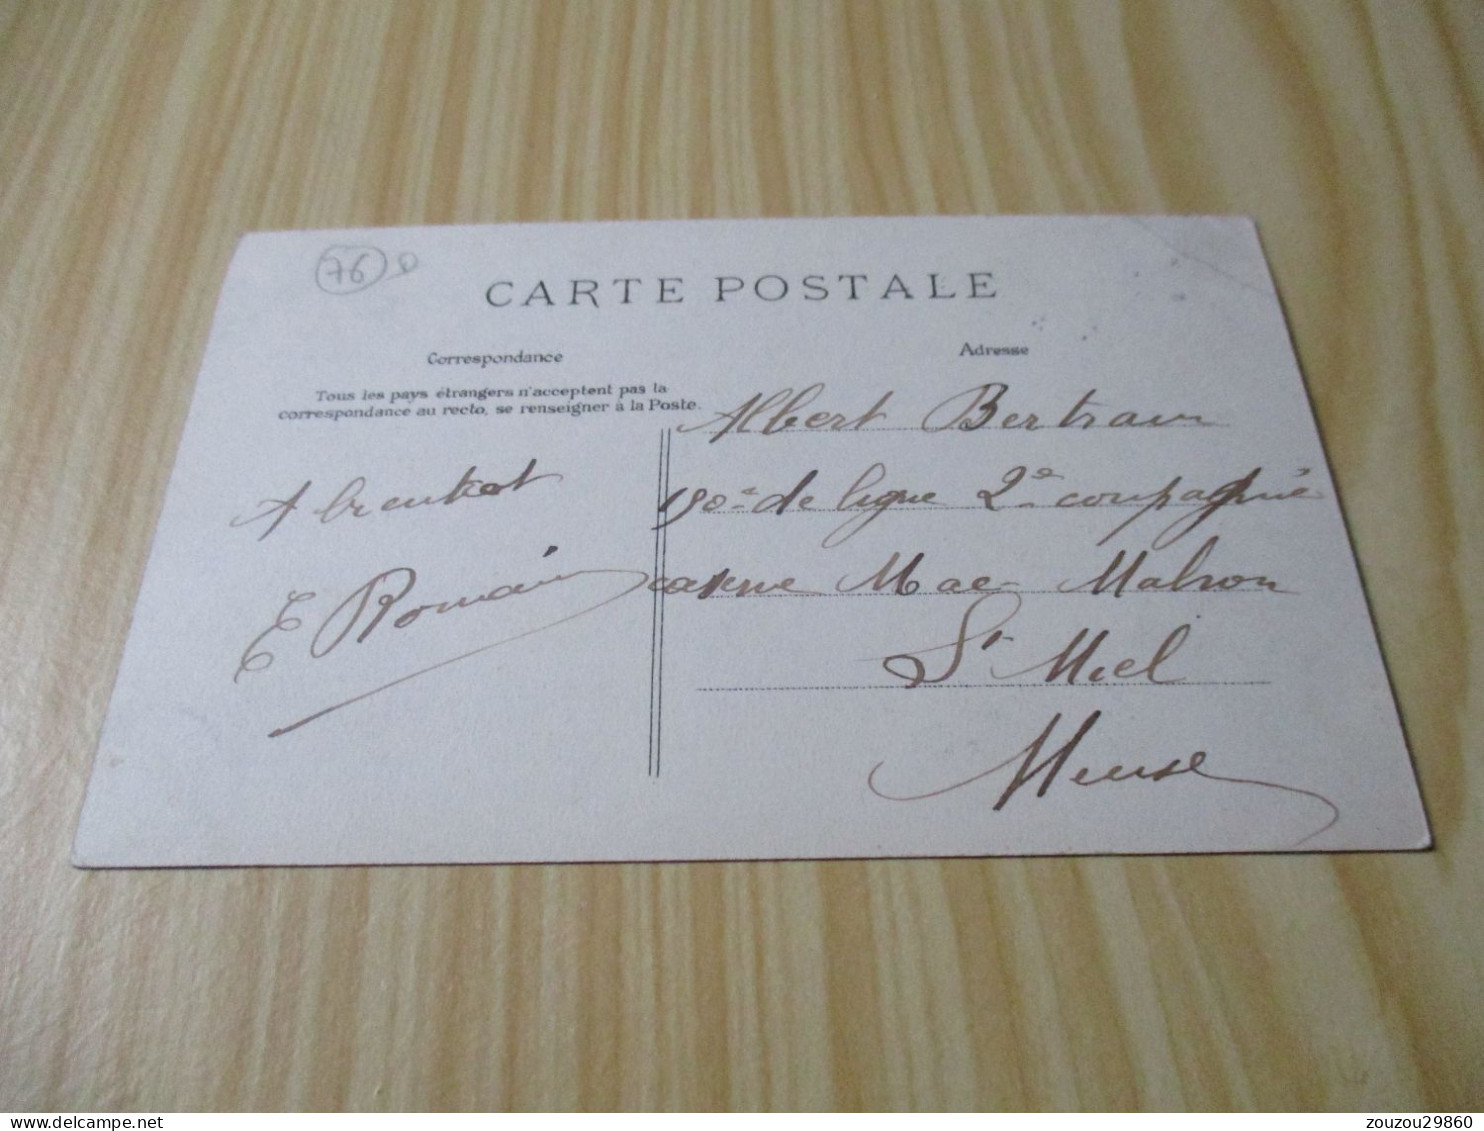 76
CARTE POSTALE
Correspondance
Adresse
Tous les pays étrangers n'acceptent pas la
correspondance au recto, se renseigner à la Poste.
Albert Bertram
150e de ligne 2e compagnie
caserne Mac-Mahon
St Miel
Meuse
A
E Romain
zouzou29860